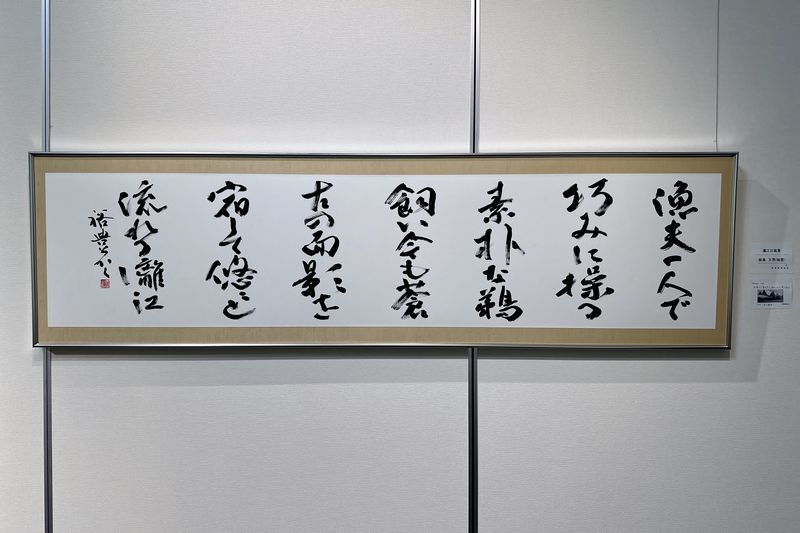 漁夫一人で
巧みに操つ
素朴な鵜
飼い今も蒼
古の面影を
宿して悠々と
流れる灕江
裕豊かく
灕江の風景